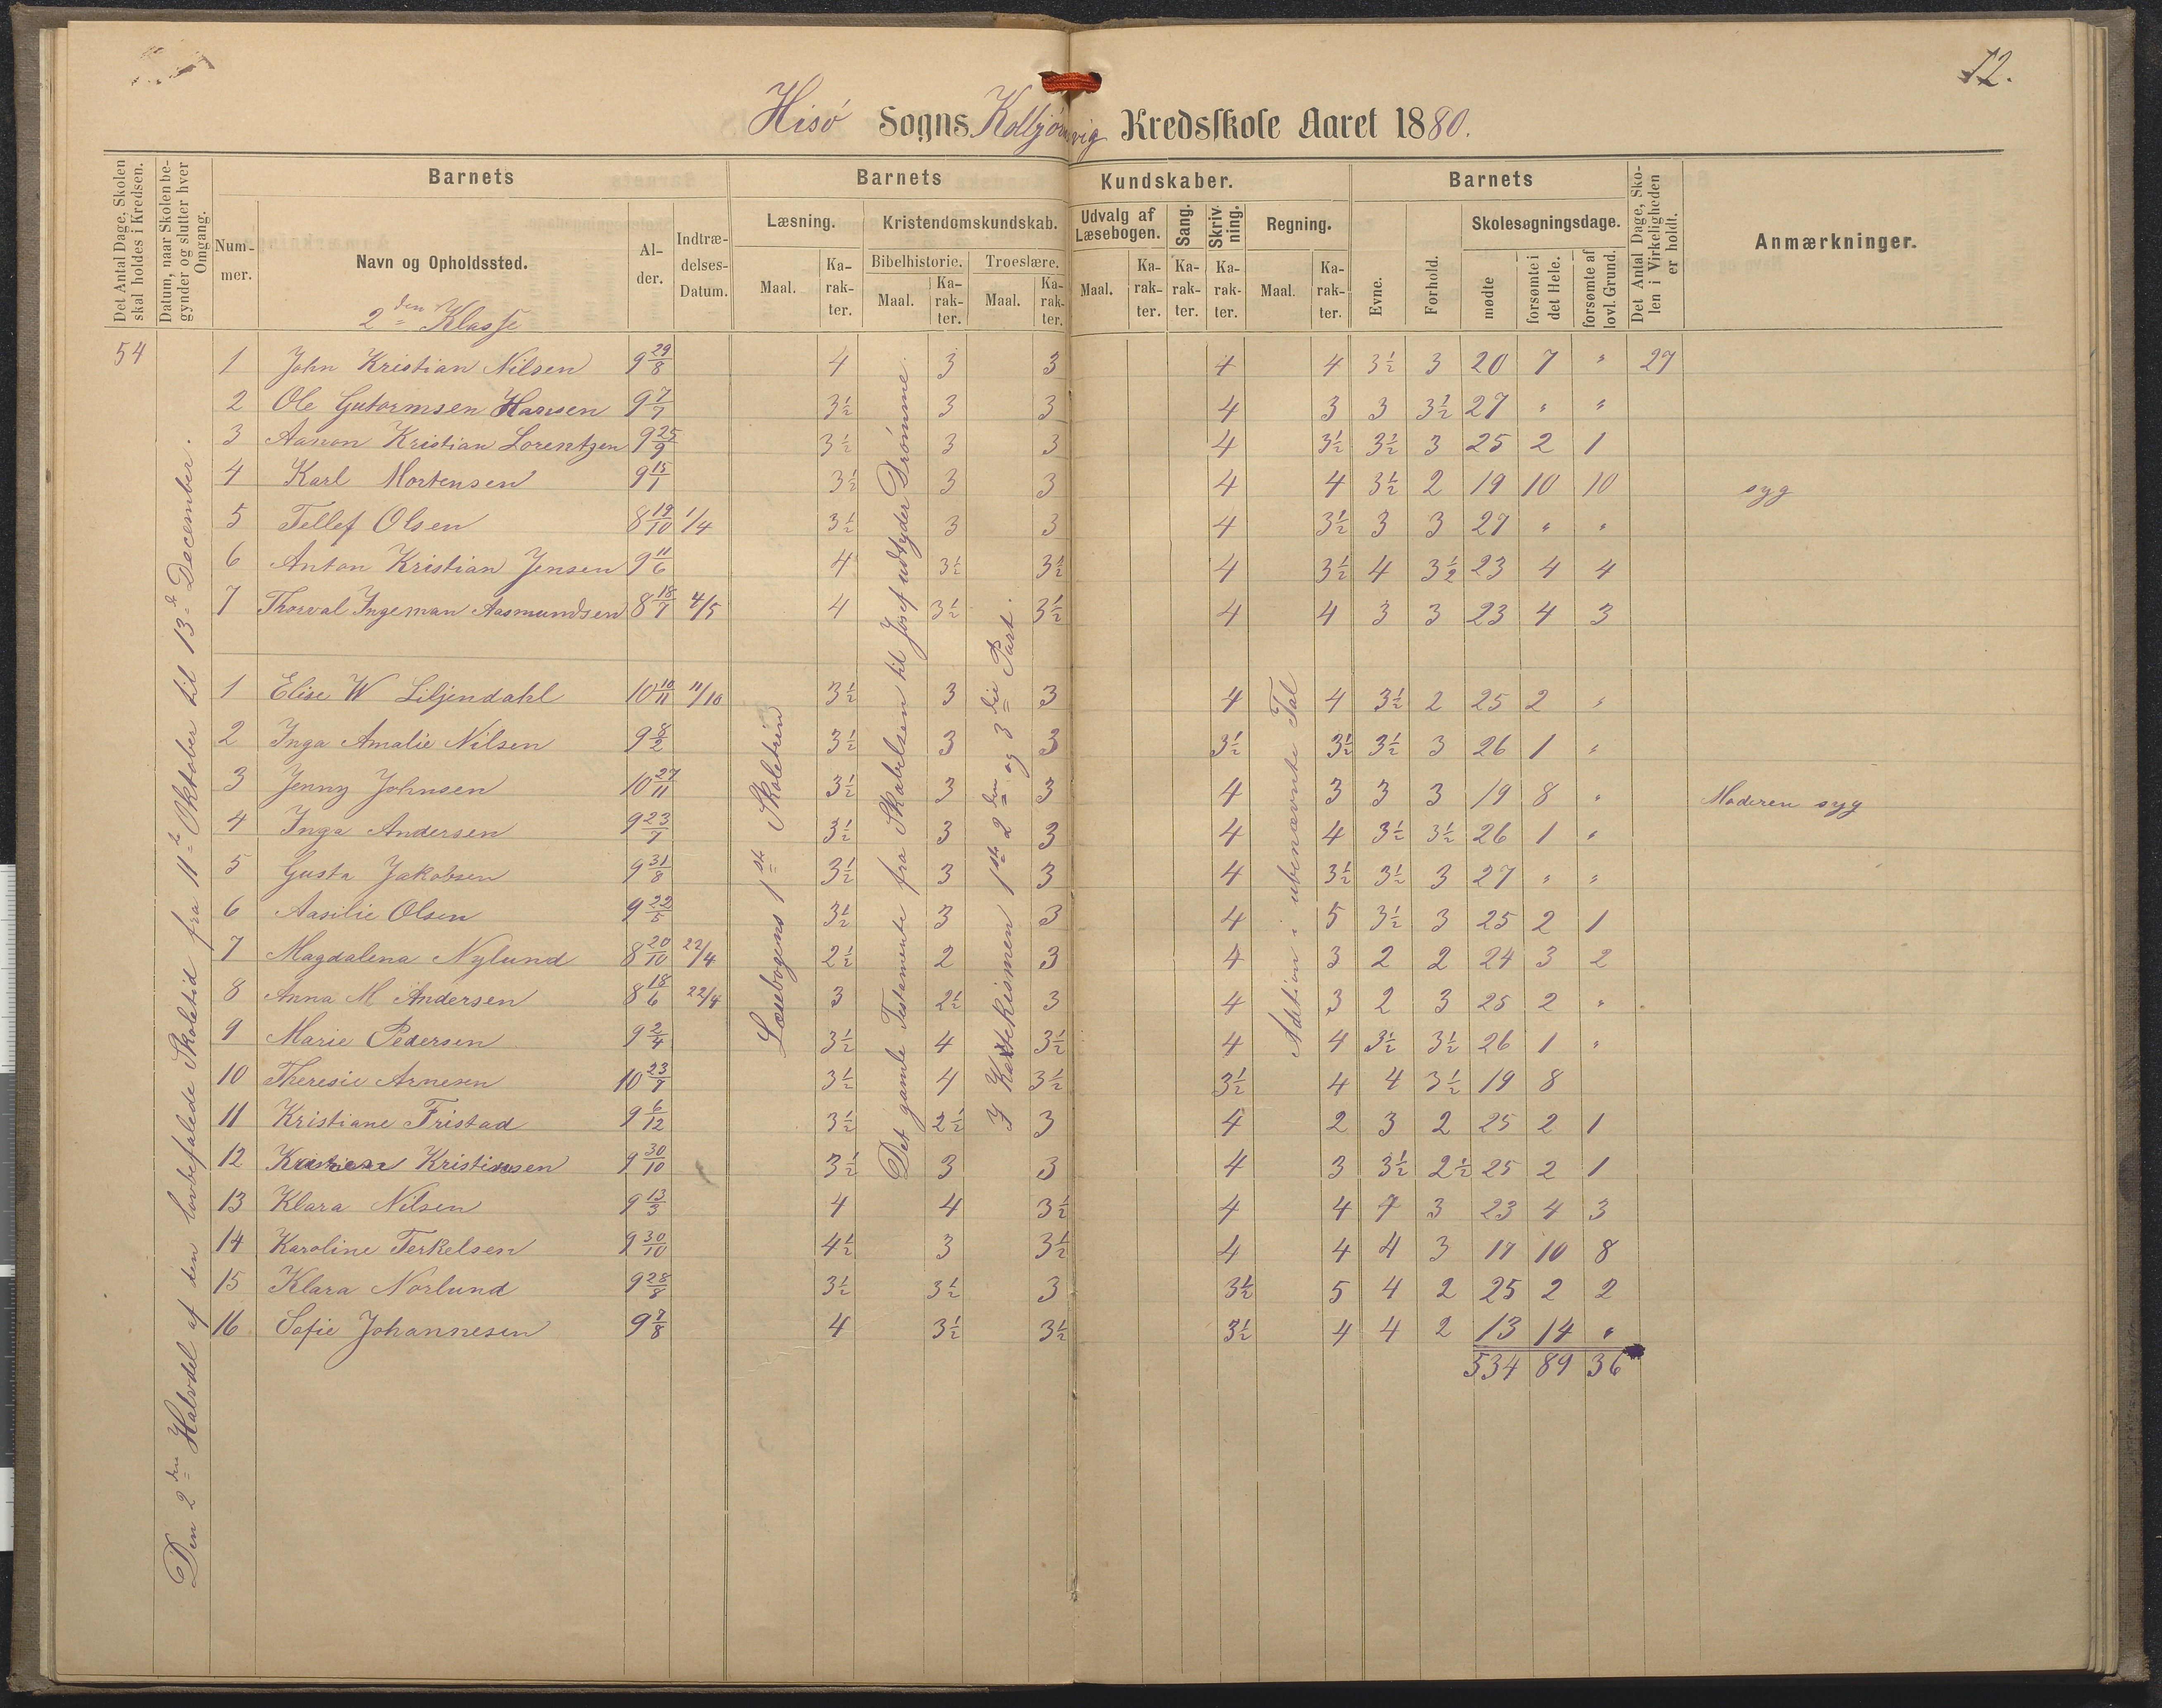 12.
Hisö Sogns Kolbjörnsvig Kredsskole Aaret 1880.
Det Antal Dage, Skolen skal holdes i Kredsen.
Datum, naar Skolen begynder og slutter hver Omgang.
Barnets
Nummer.
Navn og Opholdssted.
Alder.
Indtrædelses-Datum.
Barnets Kundskaber.
Læsning.
Maal.
Karakter.
Kristendomskundskab.
Bibelhistorie.
Maal.
Karakter.
Troeslære.
Maal.
Karakter.
Udvalg af Læsebogen.
Maal.
Karakter.
Sang.
Karakter.
Skrivning.
Karakter.
Regning.
Maal.
Karakter.
Barnets
Evne.
Forhold.
Skolesøgningsdage.
mødte
forsømte i det Hele.
forsømte af lovl. Grund.
Det Antal Dage, Skolen i Virkeligheden er holdt.
Anmærkninger.
2den Klasse
54
Den 2den Halvdel af den lovbefalede Skoletid fra 11te Oktober til 13de December.
Læsebogens 1ste Skoletrin
Det gamle Testamente fra Skabelsen til Josef udtyder Drömme.
I Katekismen 1ste 2den og 3die Part.
Adition i ubenævnte Tal
1 John Kristian Nilsen 9 29/8 4 3 3 4 4 3½ 3 20 7 " 27
2 Ole Gutormsen Hansen 9 7/7 3½ 3 3 4 3 3 3½ 27 " "
3 Aanon Kristian Lorentzen 9 25/9 3½ 3 3 4 3½ 3½ 3 25 2 1
4 Karl Mortensen 9 15/1 3½ 3 3 4 4 3½ 2 19 10 10 syg
5 Tellef Olsen 8 19/10 1/4 3½ 3 3 4 3½ 3 3 27 " "
6 Anton Kristian Jensen 9 11/6 4 3½ 3½ 4 3½ 4 3½ 23 4 4
7 Thorval Ingeman Aasmundsen 8 18/7 4/5 4 3½ 3½ 4 4 3 3 23 4 3
1 Elise W Liljendahl 10 10/11 11/10 3½ 3 3 4 4 3½ 2 25 2 "
2 Inga Amalie Nilsen 9 8/2 3½ 3 3 3½ 3½ 3½ 3 26 1 "
3 Jenny Johnsen 10 27/11 3½ 3 3 4 3 3 3 19 8 " Moderen syg
4 Inga Andersen 9 23/7 3½ 3 3 4 4 3½ 3½ 26 1 "
5 Gusta Jakobsen 9 31/8 3½ 3 3 4 3½ 3½ 3 27 " "
6 Aasilie Olsen 9 22/5 3½ 3 3 4 5 3½ 3 25 2 1
7 Magdalena Nylund 8 20/10 22/4 2½ 2 3 4 3 2 2 24 3 2
8 Anna M Andersen 8 18/6 22/4 3 2½ 3 4 3 2 3 25 2 "
9 Marie Pedersen 9 2/4 3½ 4 3½ 4 4 3½ 3½ 26 1 "
10 Theresie Arnesen 10 23/7 3½ 4 3½ 3½ 4 4 3½ 19 8
11 Kristiane Fristad 9 6/12 3½ 2½ 3 4 2 3 2 25 2 1
12 Kristiansen 9 30/10 3½ 3 3 4 3 3½ 2½ 25 2 1
13 Klara Nilsen 9 13/3 4 4 3½ 4 4 4 3 23 4 3
14 Karoline Terkelsen 9 30/10 4½ 3 3½ 4 4 4 3 17 10 8
15 Klara Norlund 9 28/8 3½ 3½ 3 3½ 5 4 2 25 2 2
16 Sofie Johannesen 9 7/8 4 3½ 3½ 3½ 4 4 2 13 14 "
534 89 36